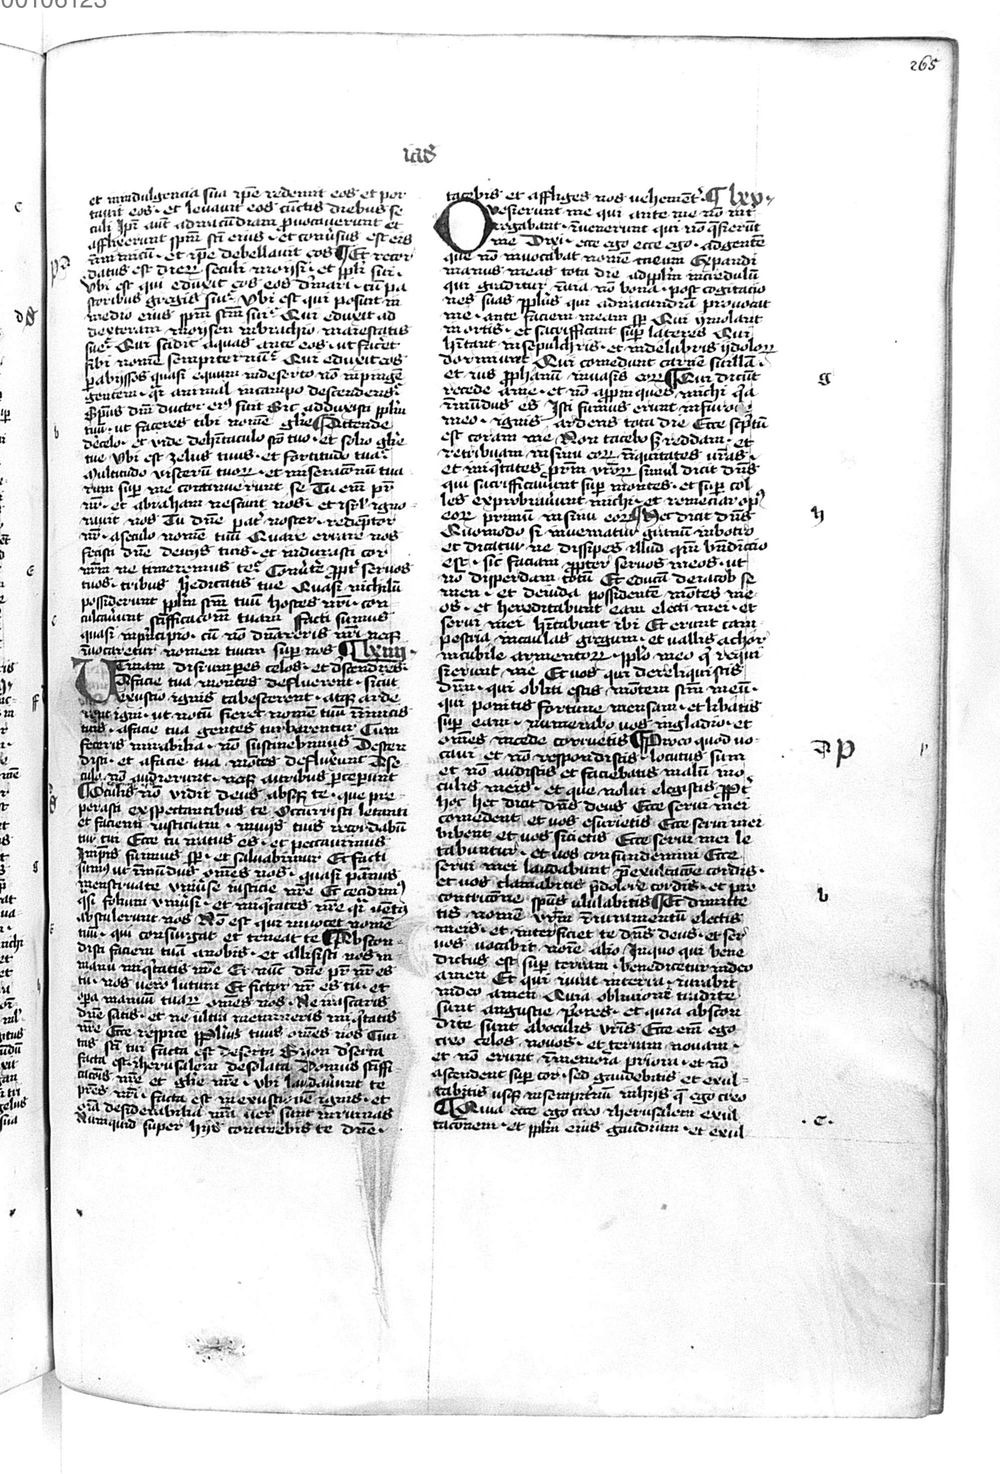 00106123
265
ias
et in indulgencia sua ip̄e redemit eos et por
tauit eos · et leuauit eos cūctis diebus se
culi Ipī aut̄ ad iracūdiam ꝓuocauerunt et
afflixerunt spm̄ sc̄ı eius · et conūsus est eis
in inimicū · et ip̄e debellauit eos ¶ Et recor
datus est dierū seculi moysi · et ppl̄i sui ·
Vbi est qui eduxit eos de mari · cū pa
storibus gregis sui Vbi est qui posuit in
medio eius spm̄ sc̄m sui Qui eduxit ad
dexteram moysen in brachio maiestatis
sue Qui scidit aquas ante eos · ut facet̄
sibi nomē sempiternū Qui eduxit eos
ꝑ abyssos quasi equum in deserto nō inpingē
gentem · qͥ animal in campo descendens
Spūs dn̄i ductor eiꝰ fuit Sic adduxisti ppl̄m
tuū · ut faceres tibi nomē glı̄e ¶ Attende
de celo · et vide de hītaculo sc̄o tuo · et solio glı̄e
tue Vbi est zelus tuus · et fortitudo tua
Multitudo viscerū tuoꝝ · et miseracionū tua
rum suꝑ me continuerunt se Tu eī pr̄
nr̄ · et abraham nesciuit nos · et isrl̄ igno
rauit nos Tu dn̄e pat̄ noster · redēptor
nr̄ · a seculo nomē tuū Quare errare nos
fecisti dn̄e de viis tuis · et indurasti cor
nr̄m ne timeremus te Conūte ꝓpt̄ seruos
tuos · tribus hereditatis tue Quasi nichilū
possiderunt ppl̄m sc̄m tuū hostes nr̄i · con
culcauerunt sc̄ificacōm tuam facti sumus
quasi in pͥncipio · cū nō dn̄areris nr̄i neqꝫ
inuocaretur nomen tuum suꝑ nos ¶ lxiiii ·
Utinam disrumperes celos · et descenderes
a facie tua montes defluerent · sicut
exustio ignis tabescerent · aque arde
rent igni · ut notū fieret nomē tuū inimicis
tuis · a facie tua gentes turbarentur Cum
feceris mirabilia · nō sustinebimus Descen
disti · et a facie tua mōtes defluxerunt A se
culo nō audierunt · neqꝫ auribus ꝑceperunt
¶ Oculus nō vidit deus absqꝫ te · que pre
parasti expectantibus te Occurristi letanti
et facienti iusticiam · in viis tuis recordabūt
tur tui Ecce tu iratus es · et peccauimus
In ip̄is fuimus sꝑ · et saluabimur Et facti
sumꝰ ut inmūdus om̄es nos · quasi pannus
menstruate vniūse iusticie nr̄e Et cecidimꝰ
qͣsi foliū vniūsi · et iniq̇tates nr̄e qͥ uētꝰ
abstulerunt nos Nō est qui inuocet nomē
tuū · qui consurgat et teneat te ¶ Abscon
disti faciem tuā a nobis · et allisisti nos in
manu iniq̇tatis nr̄e Et nūc dn̄e pr̄ nr̄ es
tu · nos vero lutum Et fictor nr̄ es tu · et
oꝑa manuū tuaꝝ om̄es nos · Ne irascaris
dn̄e satis · et ne ultra memineris iniq̇tatis
nr̄e Ecce respice Ppl̄us tuus om̄es nos Ciui
tas sc̄ı tui facta est deserta Syon deserta
facta est · ih̄erusalem desolata Domus sc̄iffi
cacōis nr̄e et glı̄e nr̄e · vbi laudauerunt te
pr̄es nr̄i · facta est in exustionē ignis · et
om̄ia desiderabilia nr̄a ūsa sunt in ruinas
Numquid super hijs continebis te dn̄e ·
tacebis et affliges nos uehement̄ ¶ lxv ·
Quesierunt me qui ante me nō int̄
rogabant · inuenerunt qui nō qͣsierūt
me Dixi · ecce ego ecce ego · ad gentē
que nō inuocabat nomē meum Expandi
manus meas tota die ad ppl̄m incredulū
qui graditur in uia nō bona · post cogitacio
nes suas Ppl̄us qui ad iracūdiā prouocat
me · ante faciem meam sꝑ Qui ymolant
in ortis · et sacrificant suꝑ lateres Qui
hītant in sepulchris · et in delubris ydoloꝝ
dormiunt Qui comedunt carnē suillā ·
et ius ꝓphanū in uasis eoꝝ ¶ Qui dicūt
recede a me · et nō appīnques michi qͣ
inmūdus es Isti fumus erunt in furore
meo · ignis ardens tota die Ecce scͥptū
est coram me Non tacebo sꝫ reddam · et
retribuam in sinu eoꝝ iniquitates ur̄as ·
et iniq̇tates pr̄m ur̄oꝝ simul dicit dn̄s
qui sacrificauerunt suꝑ montes · et suꝑ col
les exprobrauerunt michi · et remeciar opꝰ
eoꝝ primū in sinu eoꝝ ¶ Hec dicit dn̄s
Quomodo si inueniatur granū in botro
et dicatur ne dissipes illud qm̄ bn̄dictio
est · sic faciam ꝓpter seruos meos · ut
nō disperdam totū Et educā de iacob se
men · et de iuda possidentē mōtes me
os · et hereditabunt eam electi mei · et
serui mei hītabunt ibi Et erunt cam
pestria in caulas gregum · et uallis achor
in cubile armentoꝝ · ppl̄o meo qͥ requi
sierunt me Et uos qui dereliquistis
dn̄m · qui obliti estis mōtem sc̄m meū ·
qui ponitis fortune mensam · et libatis
suꝑ eam · numerabo uos in gladio · et
om̄es in cede corruetis ¶ Pro eo quod uo
caui et nō respondistis · locutus sum
et nō audistis et faciebatis malū in o
culis meis · et que nolui elegistis ꝓpt̄
hoc hec dicit dn̄s deus Ecce serui mei
comedent et uos esurietis Ecce serui mei
bibent et uos sicietis Ecce serui mei le
tabuntur · et uos confundemini Ecce
serui mei laudabunt p̄ exultacōe cordis ·
et uos clamabitis p̄ dolore cordis · et pre
contricōne spūs ululabitis ¶ Et dimitte
tis nomē ur̄m in iuramentū electis
meis · et interficiet te dn̄s deus · et ser
uos uocabit noīe alio In quo qui bene
dictus est suꝑ terram · benedicetur in deo
amen Et qui iurat in terra · iurabit
in deo amen Quia obliuioni tradite
sunt angustie pͥores · et quia abscon
dite sunt ab oculis ur̄is Ecce em̄ ego
creo celos nouos · et terram nouam ·
et nō erunt in memoria priora · et nō
ascendent suꝑ cor · sed gaudebitis et exul
tabitis usqꝫ in sempit̄nū in hijs q̄ ego creo
¶ Quia ecce ego creo ih̄erusalem exul
tacionem · et ppl̄m eius gaudium · et exul
g
h
p
b
. c .